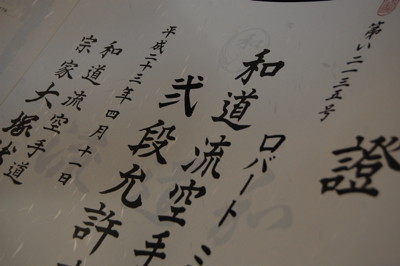 第い二三五号
證
ロバート
和道流空手
弐段允許
平成二十三年四月十一日
和道流空手道
宗家大塚